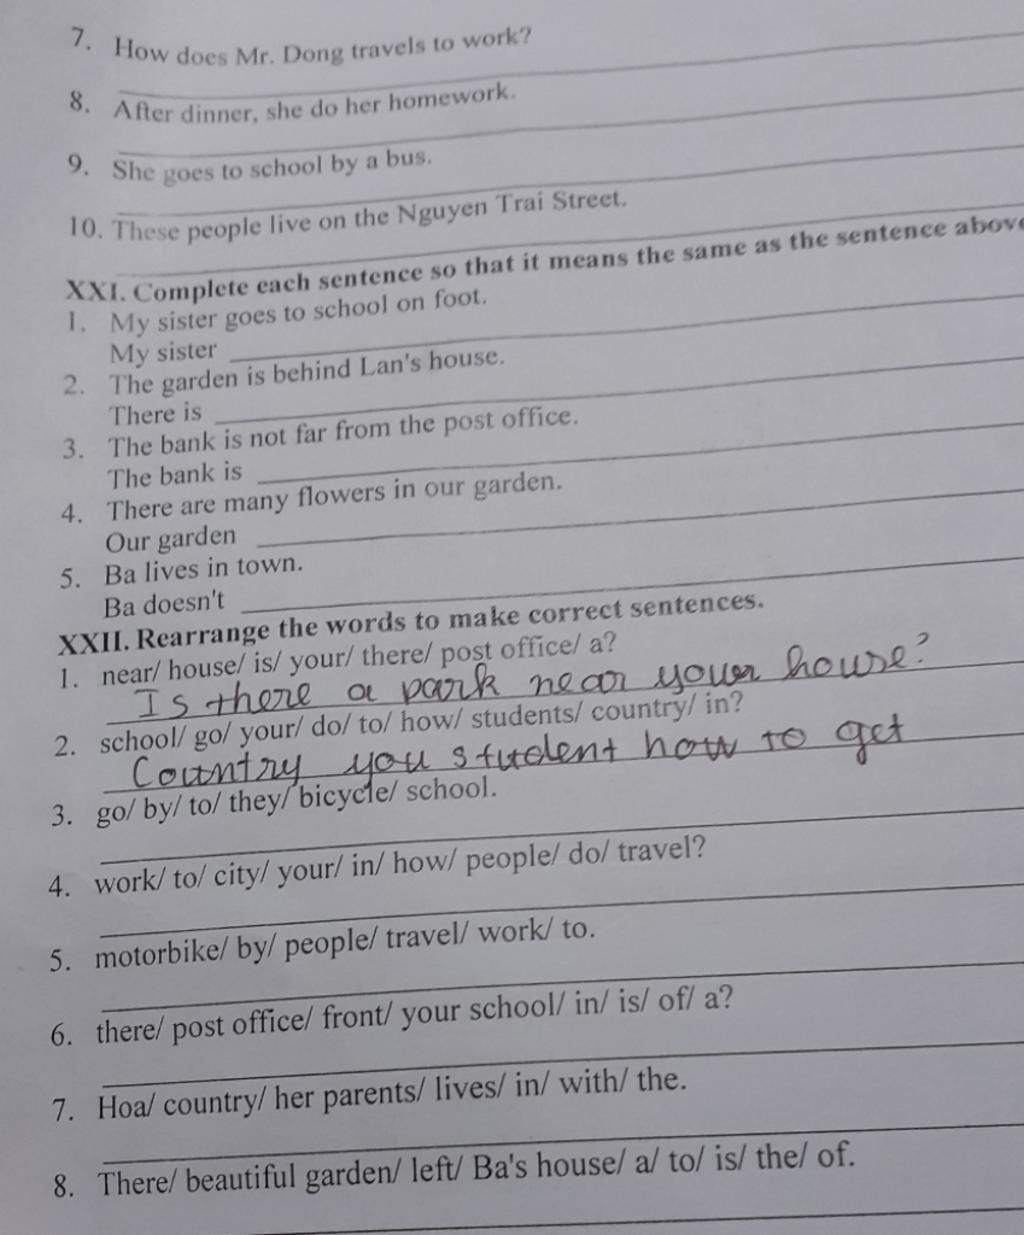 7. How does Mr. Dong travels to work?
8. After dinner, she do her homework.
9. She goes to school by a bus.
10. These people live on the Nguyen Trai Street.
XXI. Complete each sentence so that it means the same as the sentence above
1. My sister goes to school on foot.
My sister
2. The garden is behind Lan's house.
There is
3. The bank is not far from the post office.
The bank is
4. There are many flowers in our garden.
Our garden
5. Ba lives in town.
Ba doesn't
XXII. Rearrange the words to make correct sentences.
1. near/ house/ is/ your/ there/ post office/ a?
Is there a park near your house?
2. school/ go/ your/ do/ to/ how/ students/ country/ in?
Country you student how to get
3. go/ by/ to/ they/ bicycle/ school.
4. work/ to/ city/ your/ in/ how/ people/ do/ travel?
5. motorbike/ by/ people/ travel/ work/ to.
6. there/ post office/ front/ your school/ in/ is/ of/ a?
7. Hoa/ country/ her parents/ lives/ in/ with/ the.
8. There/ beautiful garden/ left/ Ba's house/ a/ to/ is/ the/ of.